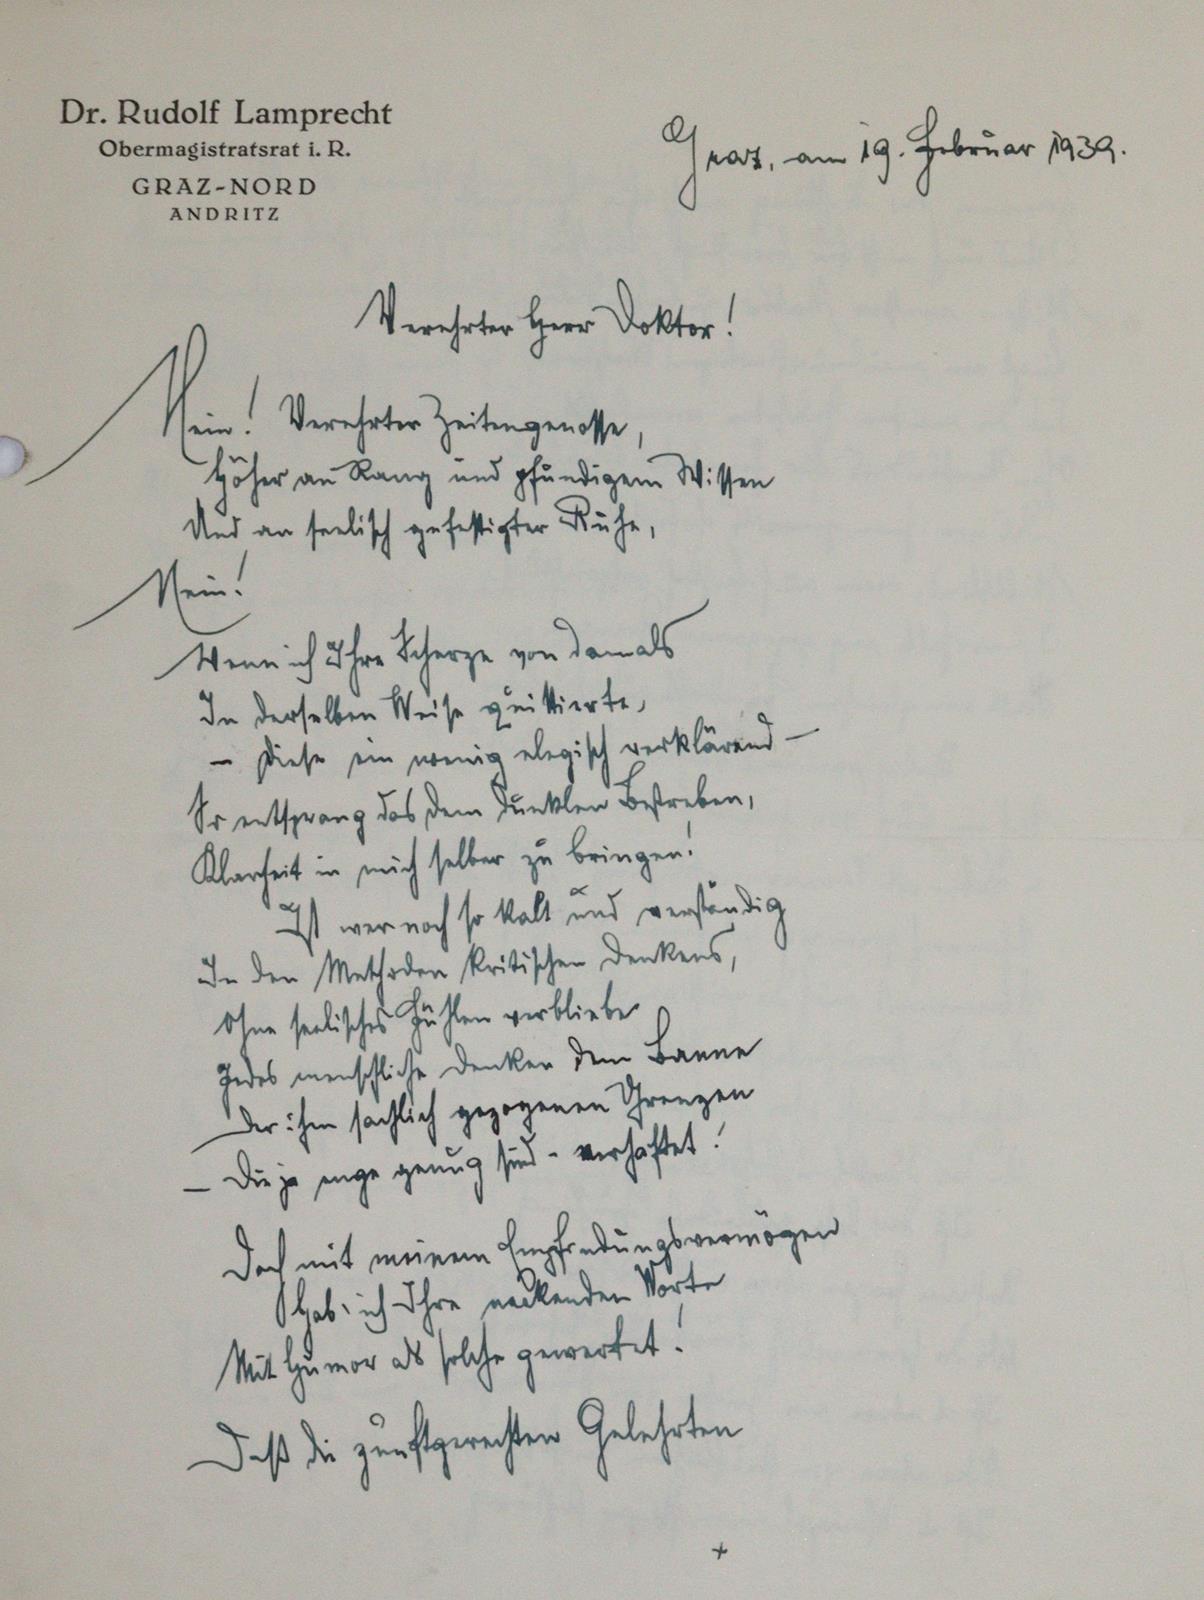 Dr. Rudolf Lamprecht
Obermagistratsrat i. R.
GRAZ-NORD
ANDRITZ
Graz, am 19. Februar 1939.
Verehrter Herr Doktor!
Nein! Verehrter Zeitengenosse,
Höher an Rang und pfündigem Wissen
Und an seelisch gefestigter Ruhe,
Nein!
Wenn ich Ihre Scherze von damals
In derselben Weise quittierte,
— Diese ein wenig elegisch verklärend —
So entsprang das dem dunklen Bestreben,
Klarheit in mich selber zu bringen!
Ist wer noch so kalt und verständig
In den Methoden kritischen Denkens,
Ohne seelisches Fühlen verbliebe
Jedes menschliche Denken dem Banne
Der ihm sachlich gezogenen Grenzen
— Die ja enge genug sind - verhaftet!
Doch mit meinem Empfindungsvermögen
Hab' ich Ihre neckenden Worte
Mit Humor als solche gewertet!
Daß die zunftgerechten Gelehrten
+